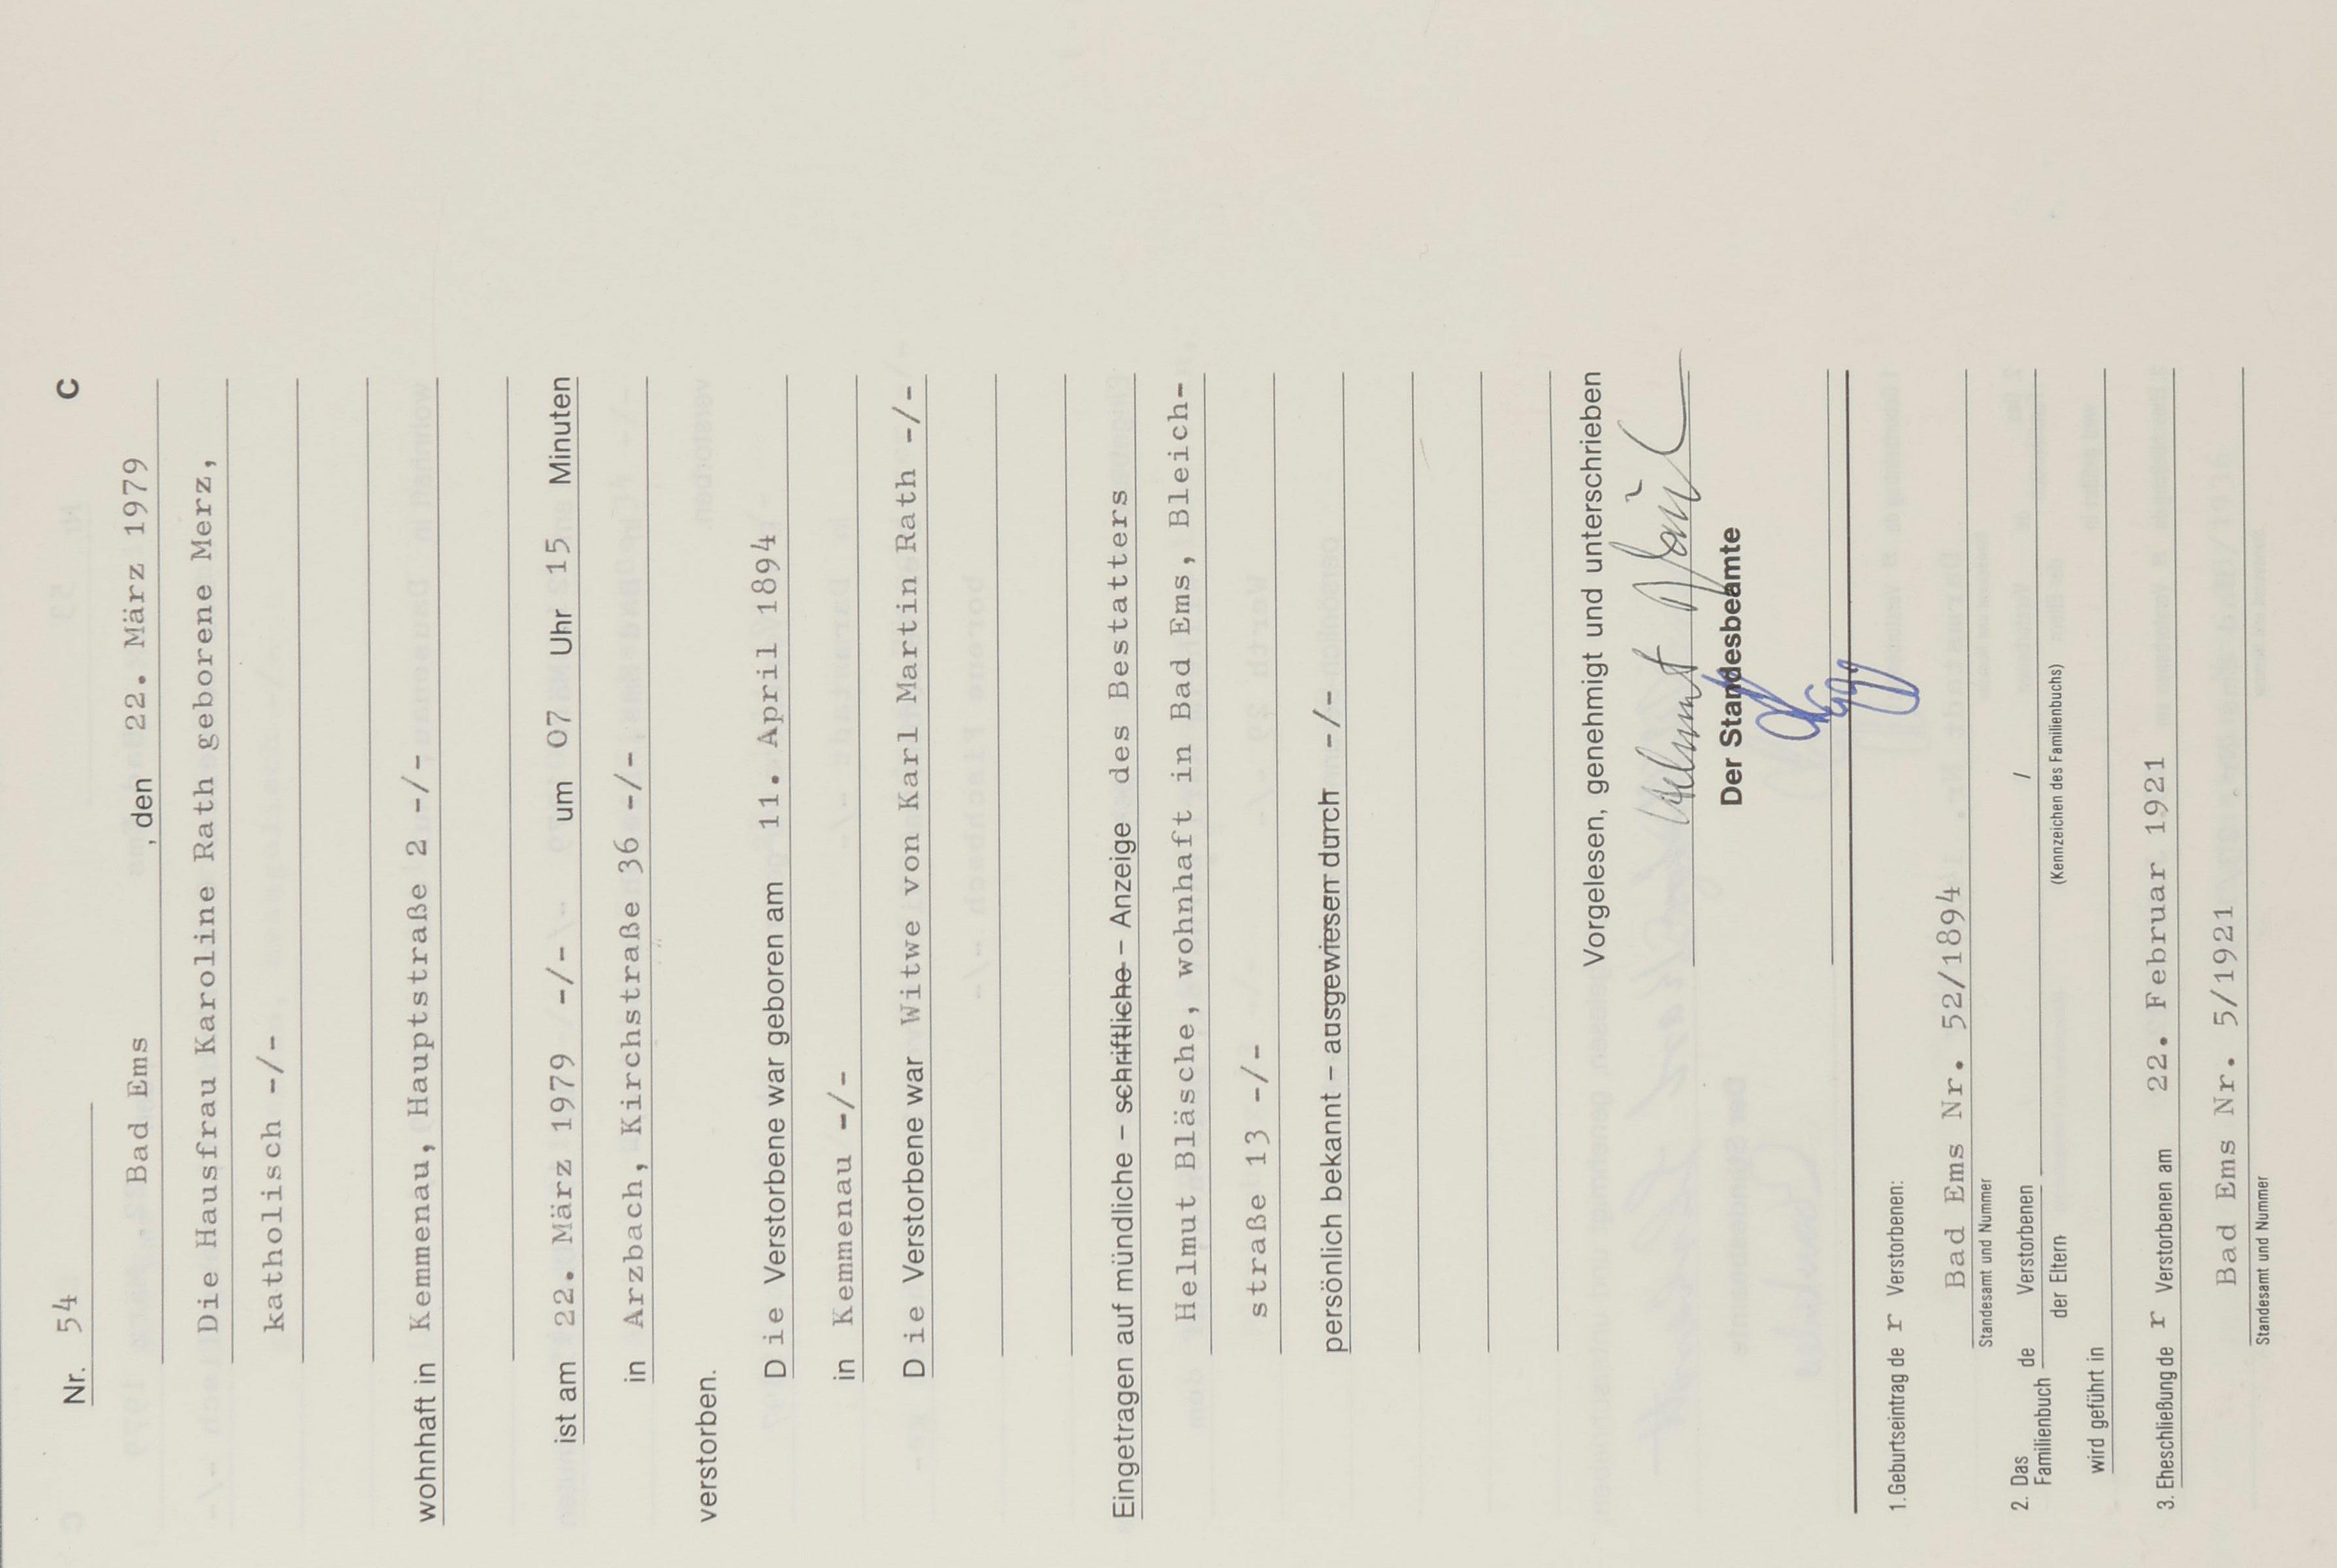 Nr. 54 C
Bad Ems , den 22. März 1979
Die Hausfrau Karoline Rath geborene Merz,
katholisch -/-
wohnhaft in Kemmenau, Hauptstraße 2 -/-
ist am 22. März 1979 -/- um 07 Uhr 15 Minuten
in Arzbach, Kirchstraße 36 -/-
verstorben.
D ie Verstorbene war geboren am 11. April 1894
in Kemmenau -/-
D ie Verstorbene war Witwe von Karl Martin Rath -/-
Eingetragen auf mündliche – schriftliche – Anzeige des Bestatters
Helmut Bläsche, wohnhaft in Bad Ems, Bleich-
straße 13 -/-
persönlich bekannt – ausgewiesen durch -/-
Vorgelesen, genehmigt und unterschrieben
Helmut
Der Standesbeamte
1. Geburtseintrag de r Verstorbenen:
Bad Ems Nr. 52/1894
Standesamt und Nummer
2. Das Familienbuch de Verstorbenen /
der Eltern
(Kennzeichen des Familienbuchs)
wird geführt in
3. Eheschließung de r Verstorbenen am 22. Februar 1921
Bad Ems Nr. 5/1921
Standesamt und Nummer